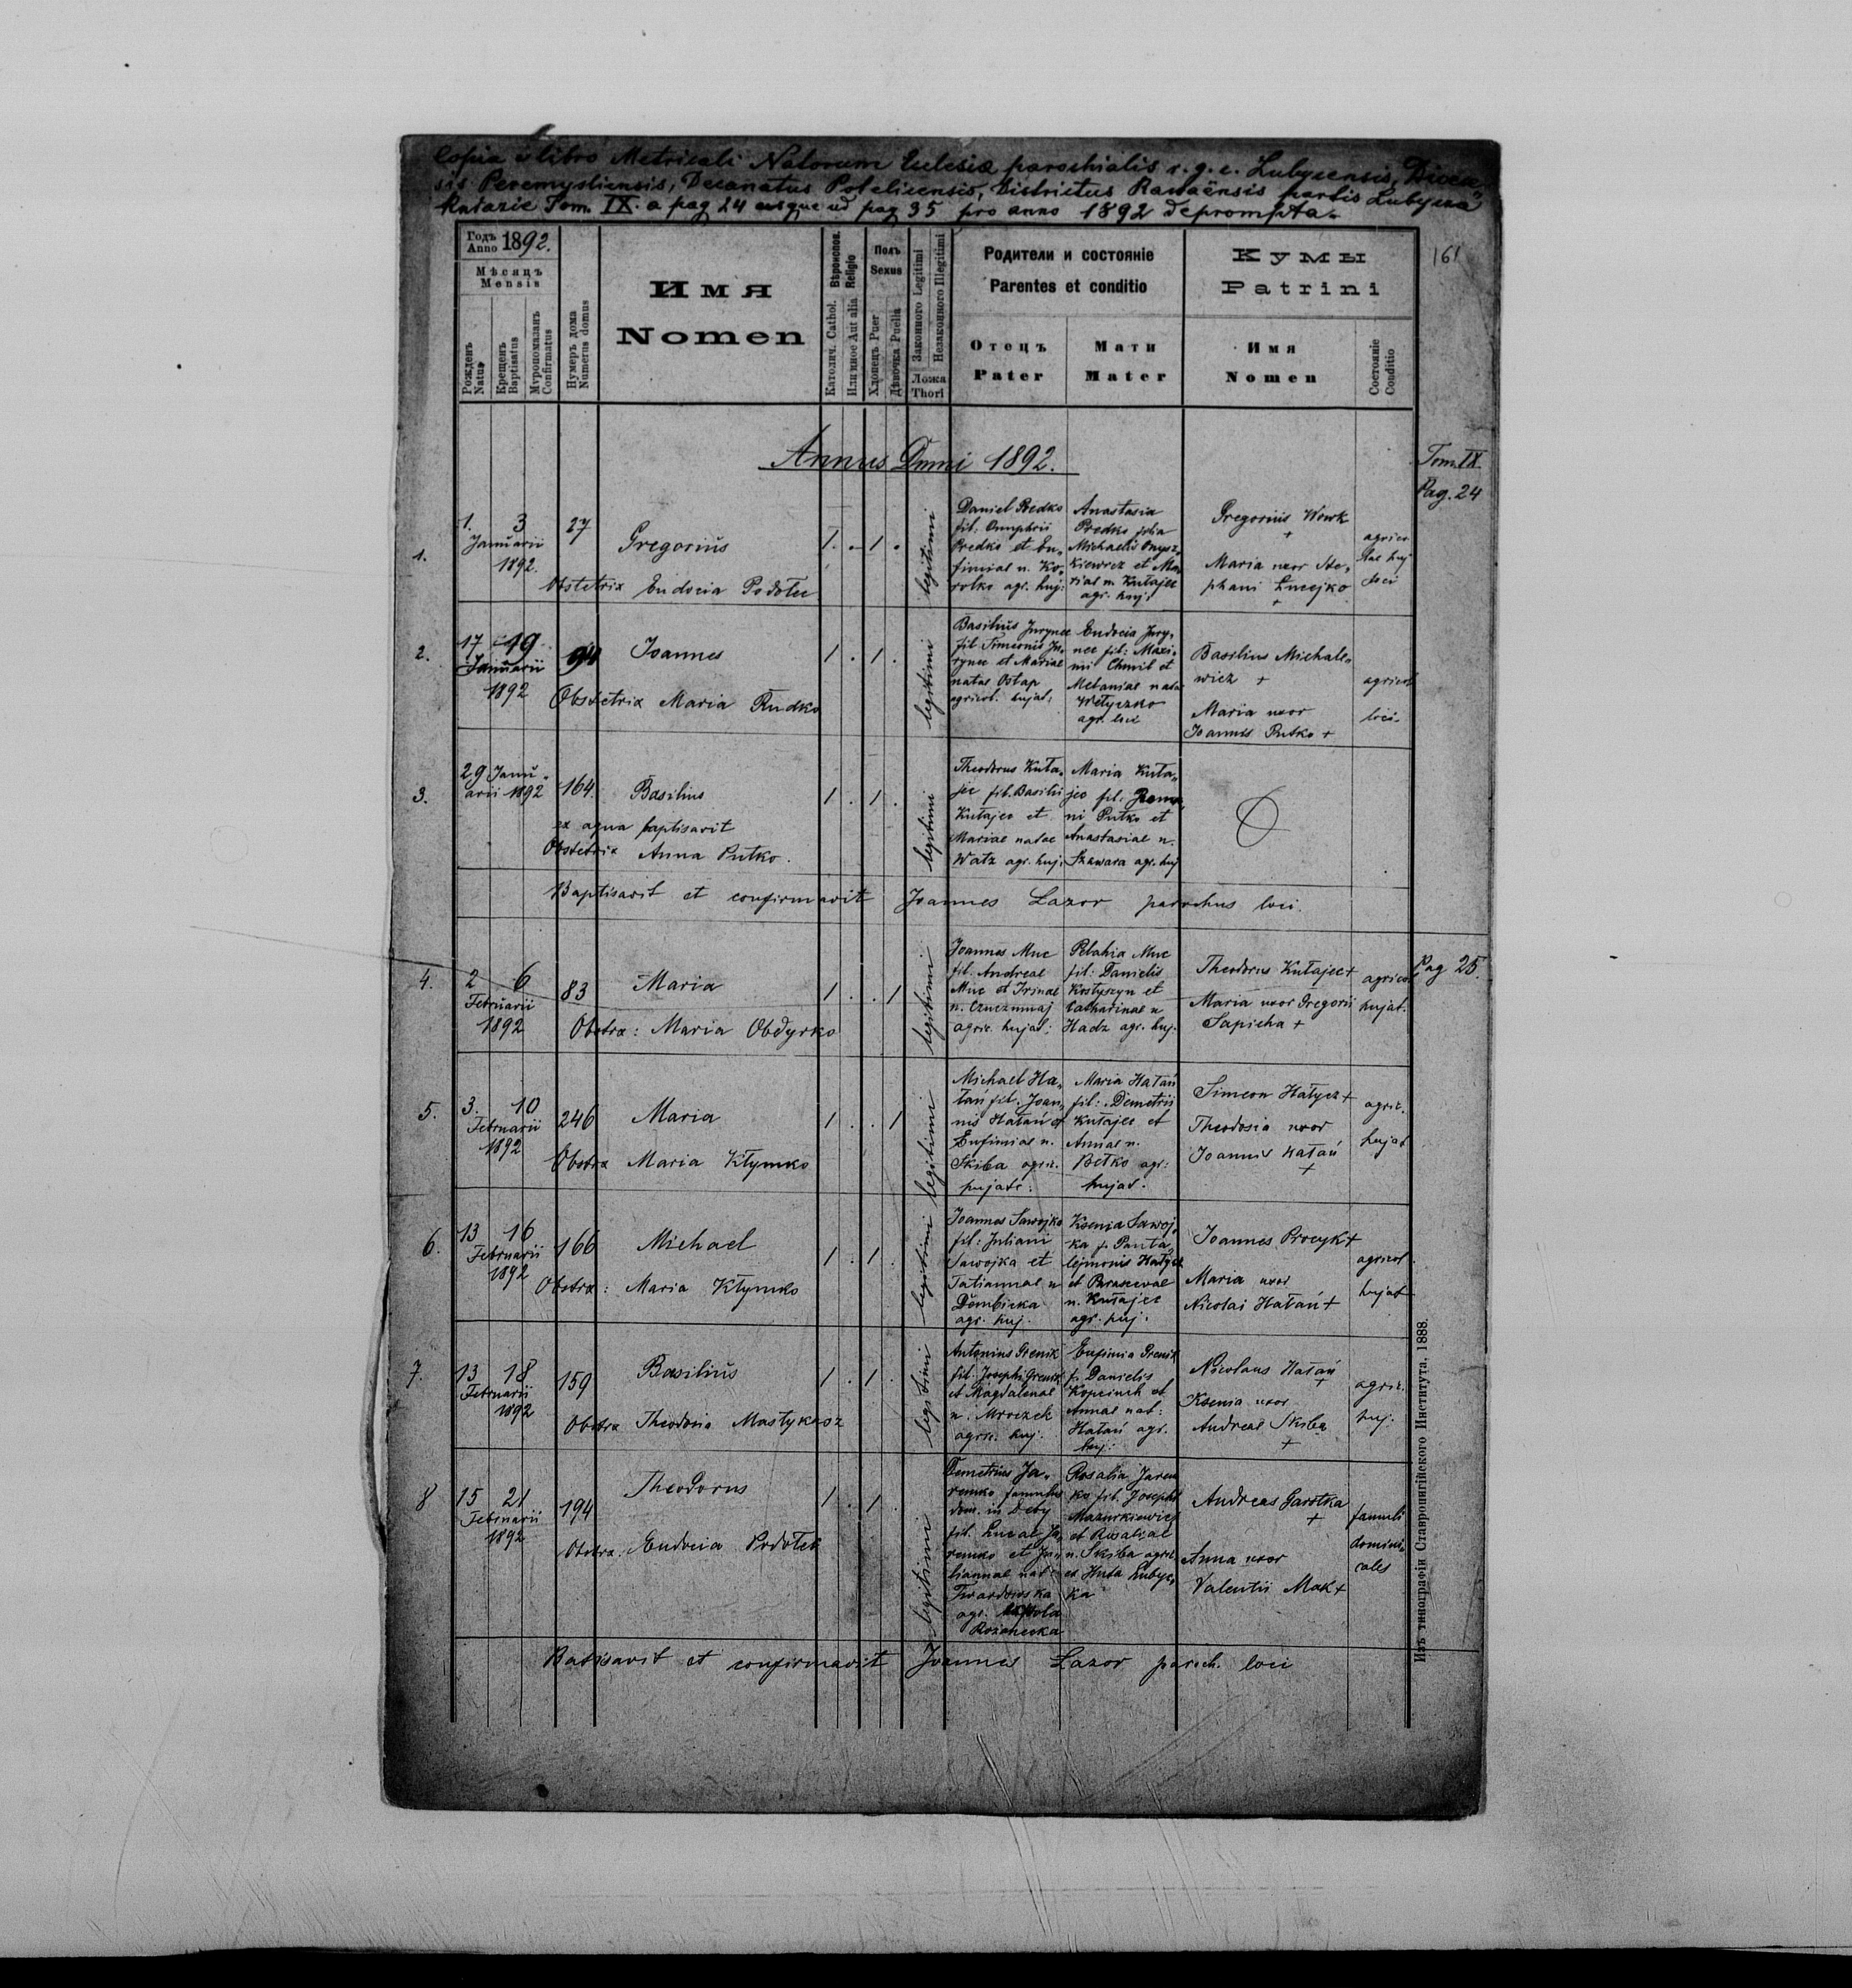 Copia e libro Metricali Natorum Ecclesiæ parochialis r. g. c. Lubycensis, Dioece„
sis Peremysliensis, Decanatus Potelicensis, Districtus Rawaënsis partis Lubycza
Kniazie Tom. IX. a pag 24 usque ad pag 35 pro anno 1892 deprompta.
161
Годъ Anno 1892.
Мѣсяцъ Mensis
Рожденъ Natus
Крещенъ Baptisatus
Мѵропомазанъ Confirmatus
Нумеръ дома Numerus domus
Имя
Nomen
Вѣроиспов. Religio
Католич. Cathol.
Или иное Aut alia
Полъ Sexus
Хлопецъ Puer
Дѣвочка Puella
Законного Legitimi
Незаконного Illegitimi
Ложа Thori
Родители и состояніе
Parentes et conditio
Отецъ
Pater
Мати
Mater
Кумы
Patrini
Имя
Nomen
Состояніе
Conditio
Annus Dmni 1892.
Tom. IX.
Pag. 24
1.
1. 3
Januarii
1892.
27
Gregorius
Obstetrix Eudocia Podołec
1 . 1 .
legitimi
Daniel Predko
fil. Onuphrii
Predko et Eu„
fimiae n. Ko„
rotko agr. huj:
Anastasia
Predko filia
Michaelis Onysz„
kiewicz et Ma„
riae n. Kułajec
agr. huj:
Gregorius Wowk
+
Maria uxor Ste„
phani Łucejko
+
agrico
lae huj
loci
2.
17 19
Januarii
1892
94
Joannes
Obstetrix Maria Rudko
1 . 1 .
legitimi
Basilius Jurynec
fil Simeonis Ju„
rynec et Mariae
natae Ostap
agricol. hujat:
Eudocia Jury„
nec fil: Maxi„
mi Chmil et
Melaniae natae
agr. loci
Basilius Michale„
wicz +
Maria uxor
Joannis Putko +
agricol
loci.
3.
29 Janu„
arii 1892
164.
Basilius
ex aqua baptisavit
Obstetrix Anna Putko.
1 . 1 .
legitimi
Theodorus Kuła„
jec fil. Basilii
Kułajec et
Mariae natae
Watz agr. huj:
Maria Kuła„
jec fil. Roma„
ni Putko et
Anastasiae n.
Szawara agr. huj
Baptisavit et confirmavit Joannes Lazor parochus loci.
4.
2 6
Februarii
1892
83
Maria
Obstrx: Maria Obdyrko
1 . . 1
legitimi
Joannes Muc
fil: Andreae
Muc et Irinae
n.
agric. hujat:
Pelahia Muc
fil: Danielis
Kostyszyn et
Catharinae n
Hadz agr. huj.
Theodorus Kułajec +
Maria uxor Gregorii
Sapieha +
agricol
hujat.
Pag 25.
5.
3. 10
Februarii
1892
246
Maria
Obstrx Maria Kłymko
1 . . 1
legitimi
Michael Ha„
łań fil. Joan„
nis Hałań et
Eufimiae n.
Skiba agric.
hujate.
Maria Hałań
fil: Demetrii
Kułajec et
Annae n.
Betko agr:
hujat.
Simeon Hałycz +
Theodosia uxor
Joannis Hałań
+
agric.
hujat
6.
13 16
Februarii
1892
166
Michael
Obstrx: Maria Kłymko
1 . 1 .
legitimi
Joannes Sawojka
fil: Juliani
Sawojka et
Tatiannae n
Dombicka
agr. huj.
Ksenia Sawoj„
ka f. Panta„
lejmonis Hałycz
et Parascevae
n. Kułajec
agr. huj.
Joannes Procyk +
Maria uxor
Nicolai Hałań +
agricol
hujat
7.
13 18
Februarii
1892
159
Basilius
Obstrx Theodosia Mastykasz
1 . 1 .
legitimi
Antonius Grenik
fil. Josephi Grenik
et Magdalenae
n. Mroczek
agric. huj.
Eufimia Grenik
f. Danielis
Kopciuch et
Annae nat:
Hałań agr.
huj:
Nicolaus Hałań
+
Ksenia uxor
Andreae Skiba
+
agric.
huj.
8
15 21
Februarii
1892
194
Theodorus
Obstrx: Eudocia Podołec
1 . 1 .
legitimi
Demetrius Ja„
remko famulus
dom. in Deby
fil. Lucae Ja„
remko et Ju„
liannae nat:
Twardowska
agr.
Rożanecka
Rosalia Jarem
ko fil. Josephi
Mazurkiewicz
et Rosaliae
n. Skiba agric.
ex Huta Lubyc„
ka
Andreas Garstka
+
Anna uxor
Valentii Mak +
famuli
domini„
cales
Batisavit et confirmavit Joannes Lazor paroch. loci
Изъ типографіи Ставропигійского Института. 1888.